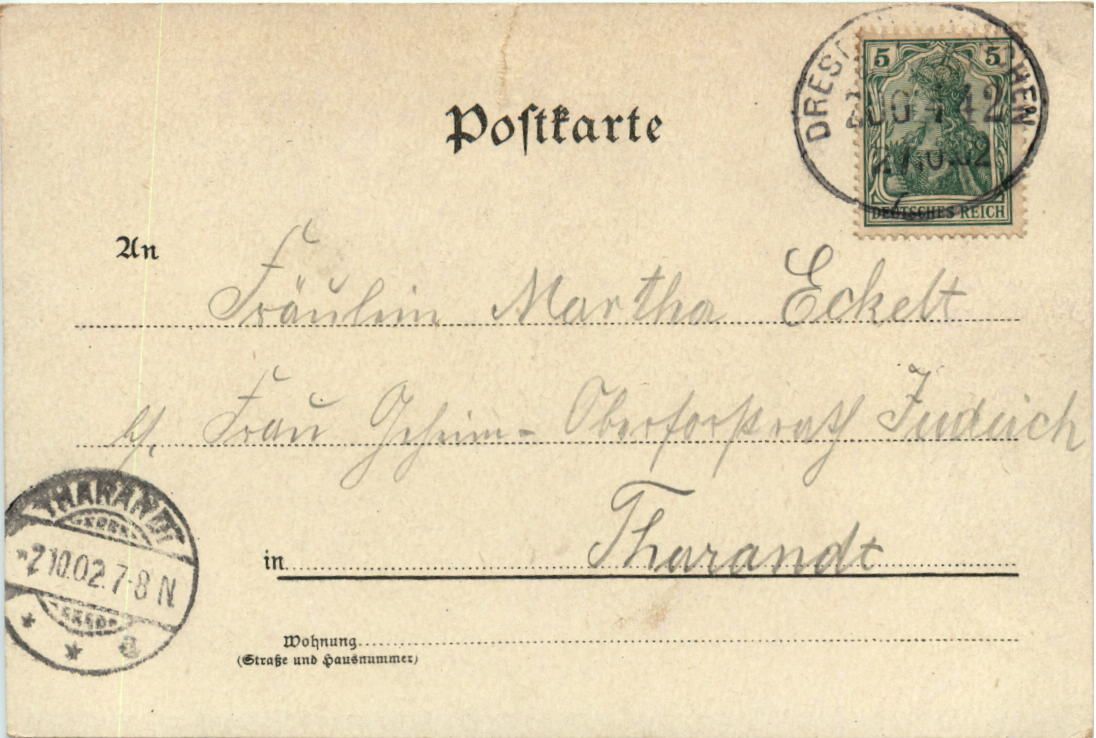 Postkarte
5 5
DEUTSCHES REICH
DRES CHEN
ZUG 442
2.10.02
An
Fräulein Martha Eckelt
bei Frau Geheim-Oberforstrath Judeich
THARANDT
2 10.02. 7-8 N.
* * a
in Tharandt
Wohnung
(Straße und Hausnummer)